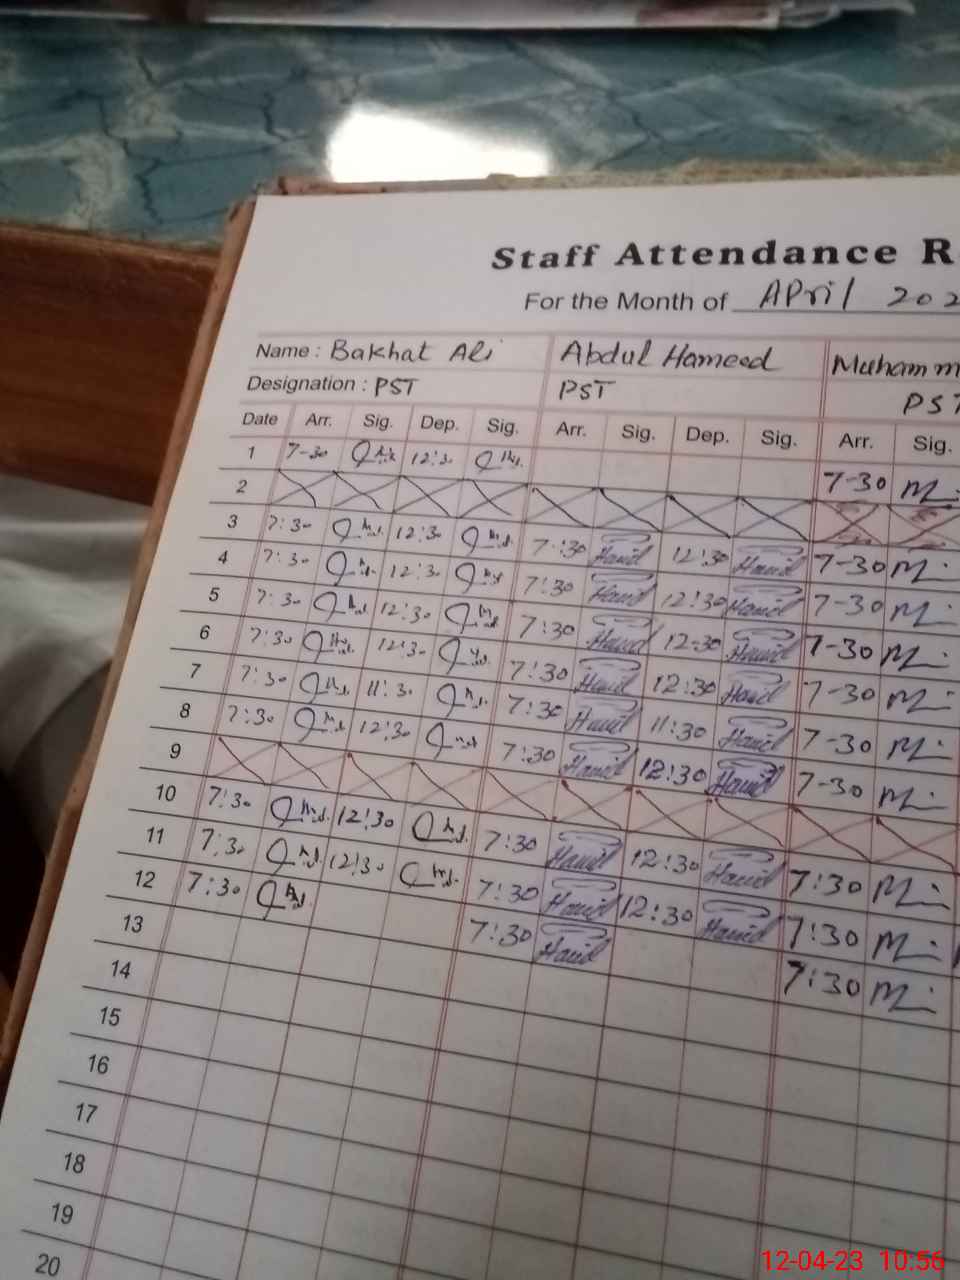 Staff Attendance R
For the Month of APril 202
Name : Bakhat Ali Abdul Hameed Muhamm
Designation : PST PST PST
Date Arr. Sig. Dep. Sig. Arr. Sig. Dep. Sig. Arr. Sig.
1 7-30 12:30 7-30
2
3 7:30 12:30 7:30 Hamid 12:30 Hamid 7-30
4 7:30 12:30 7:30 Hamid 12:30 Hamid 7-30
5 7:30 12:30 7:30 Hamid 12-30 Hamid 7-30
6 7:30 12:30 7:30 Hamid 12:30 Hamid 7-30
7 7:30 11:30 7:30 Hamid 11:30 Hamid 7-30
8 7:30 12:30 7:30 Hamid 12:30 Hamid 7-30
9
10 7:30 12:30 7:30 Hamid 12:30 Hamid 7:30
11 7:30 12:30 7:30 Hamid 12:30 Hamid 7:30
12 7:30 7:30 Hamid 7:30
13
14
15
16
17
18
19
20
12-04-23 10:56